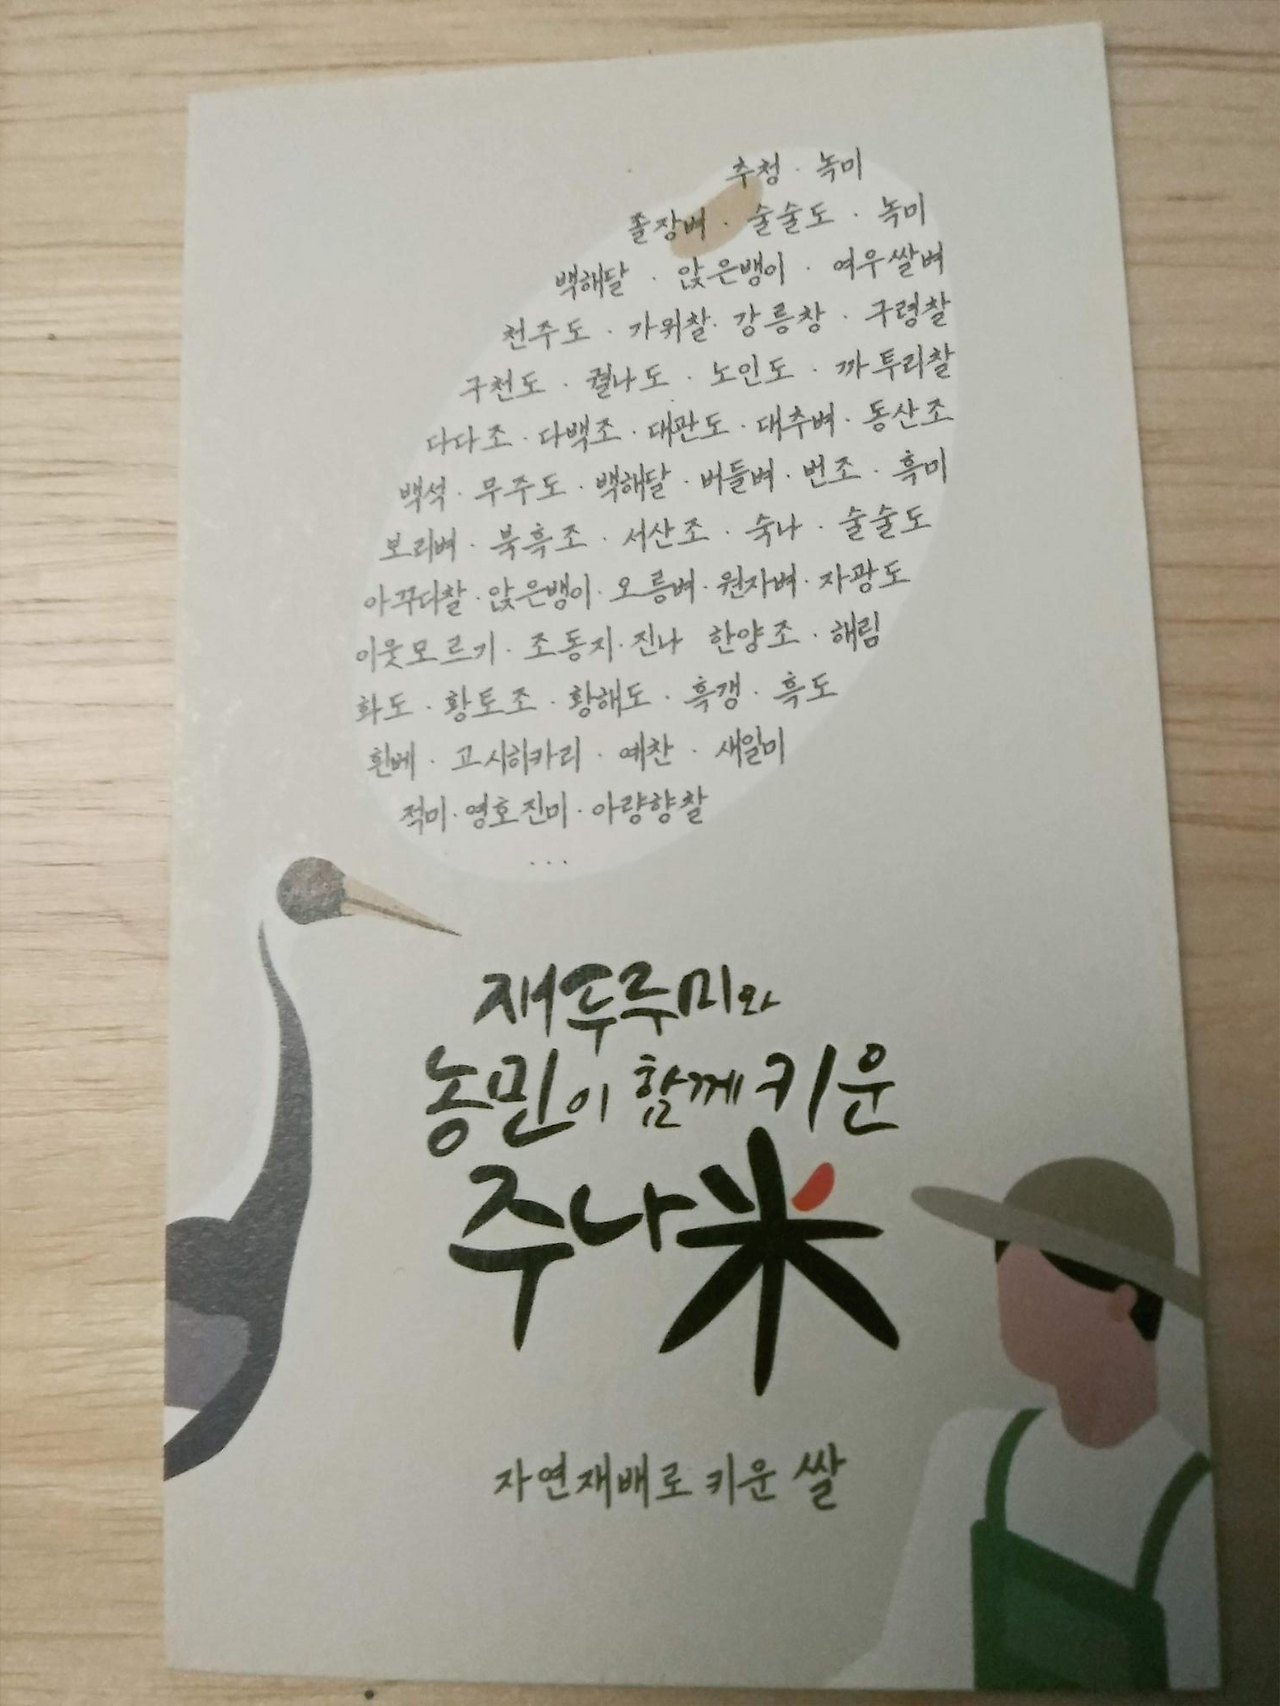 추청 · 녹미
졸장벼 · 술술도 · 녹미
백해달 · 앉은뱅이 · 여우쌀벼
천주도 · 가위찰 · 강릉창 · 구령찰
구천도 · 궐나도 · 노인도 · 까투리찰
다다조 · 다백조 · 대관도 · 대추벼 · 동산조
백석 · 무주도 · 백해달 · 버들벼 · 번조 · 흑미
보리벼 · 북흑조 · 서산조 · 숙나 · 술술도
아꾸디찰 · 앉은뱅이 · 오릉벼 · 원자벼 · 자광도
이웃모르기 · 조동지 · 진나 한양조 · 해림
화도 · 황토조 · 황해도 · 흑갱 · 흑도
흰베 · 고시히카리 · 예찬 · 새일미
적미 · 영호진미 · 아량향찰
...
재두루미와
농민이 함께 키운
주나米
자연재배로 키운 쌀